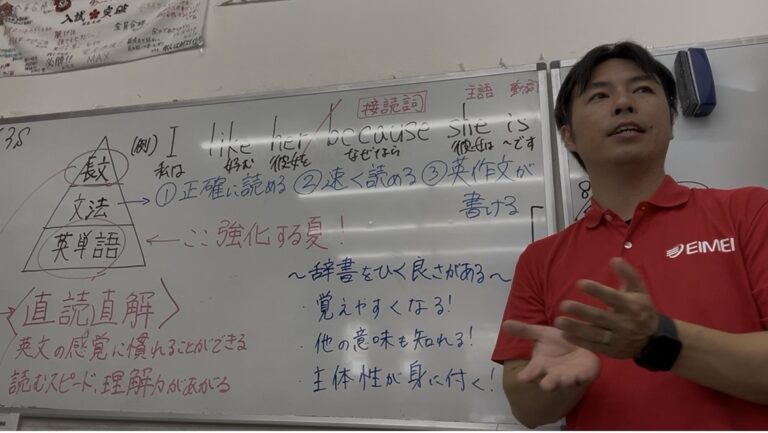 入試 突破
MAX
接続詞
主語 動詞
(例) I like her because she is
私は 好む 彼女を なぜなら 彼女は ~です
長文
文法
英単語
→ ①正確に読める ②速く読める ③英作文が
書ける
← ここ強化する夏!
〈直読直解〉
英文の感覚に慣れることができる
読むスピード、理解力があがる
~辞書をひく良さがある~
・覚えやすくなる!
・他の意味も知れる!
・主体性が身に付く!
EIMEI